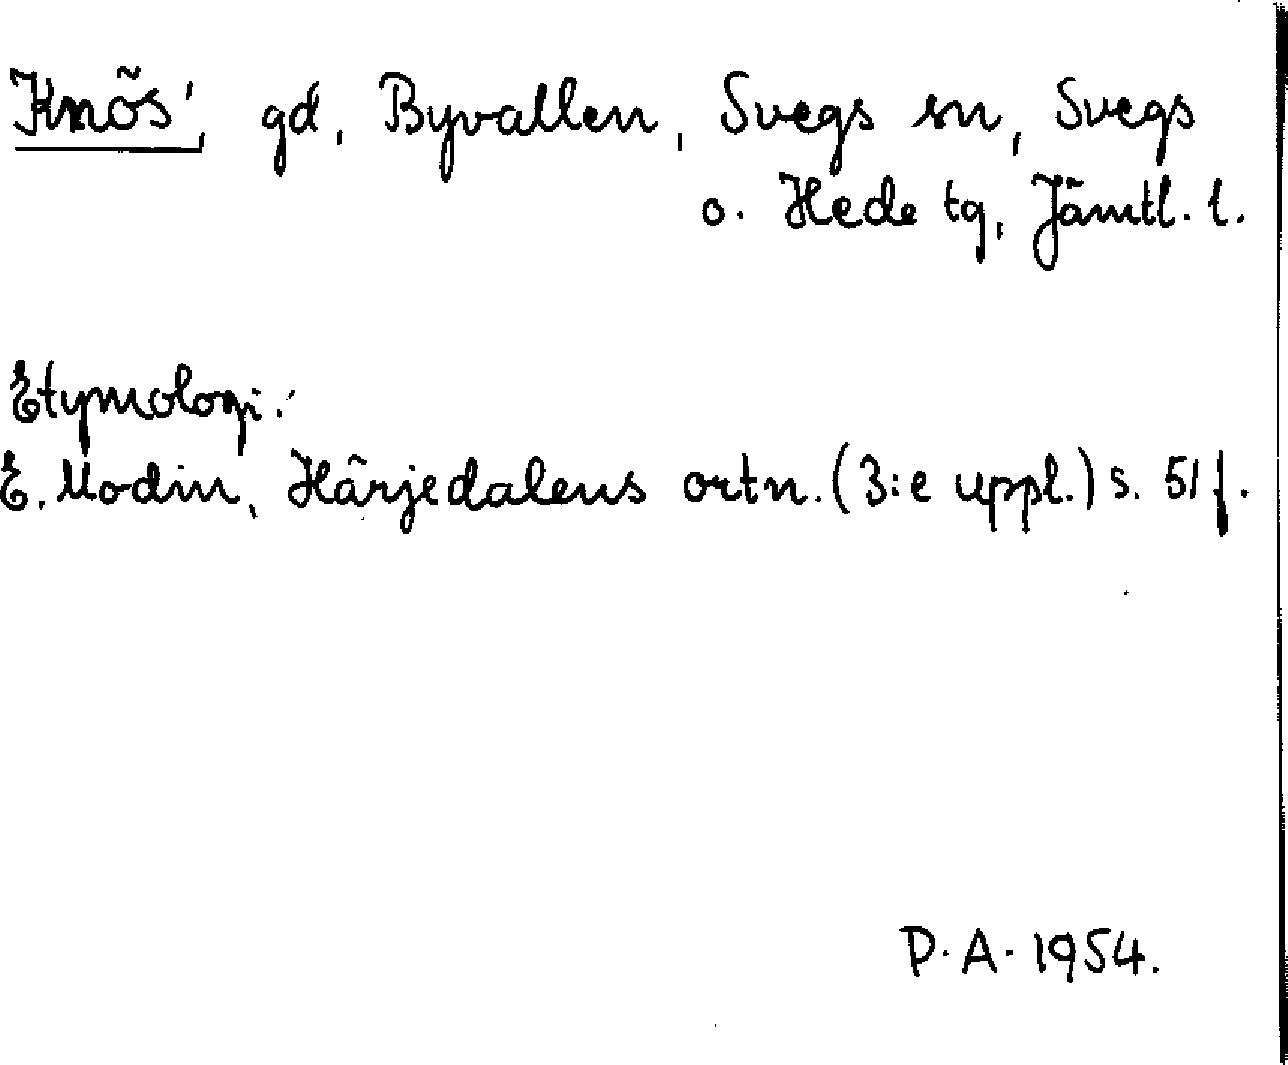 Knös', gd, Byvallen, Svegs sn, Svegs
o. Hede tg, Jämtl. l.
Etymologi:
E. Modin, Härjedalens ortn. (3:e uppl.) s. 51 f.
P.A. 1954.